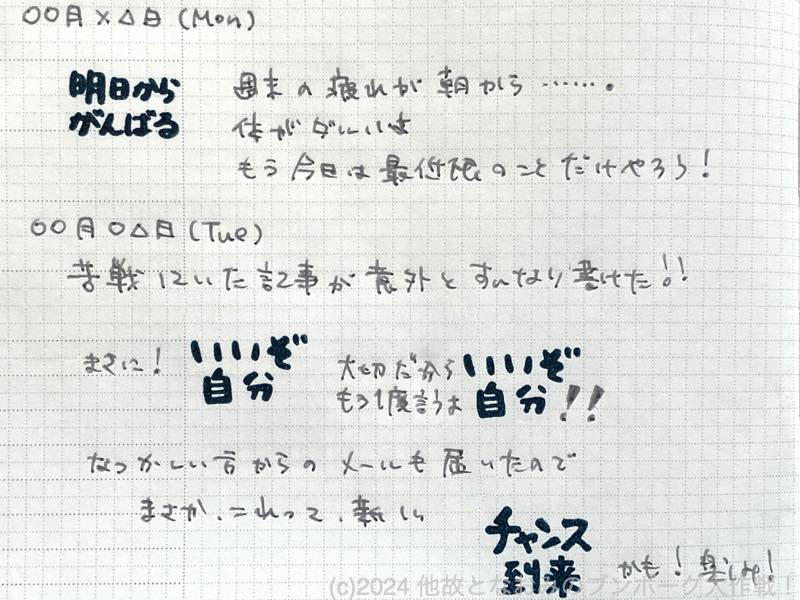 〇〇月×△日(Mon)
明日から
がんばる
週末の疲れが朝から……。
体がダルいよ
もう今日は最低限のことだけやろう!
〇〇月〇△日(Tue)
苦戦していた記事が意外とすんなり書けた!!
まさに!
いいぞ
自分
大切だから
もう1度言うよ
いいぞ
自分!!
なつかしい方からのメールも届いたので
まさか、これって、新しい
チャンス
到来
かも!楽しみ!
(c)2024 他故となおみのブンボーグ大作戦!